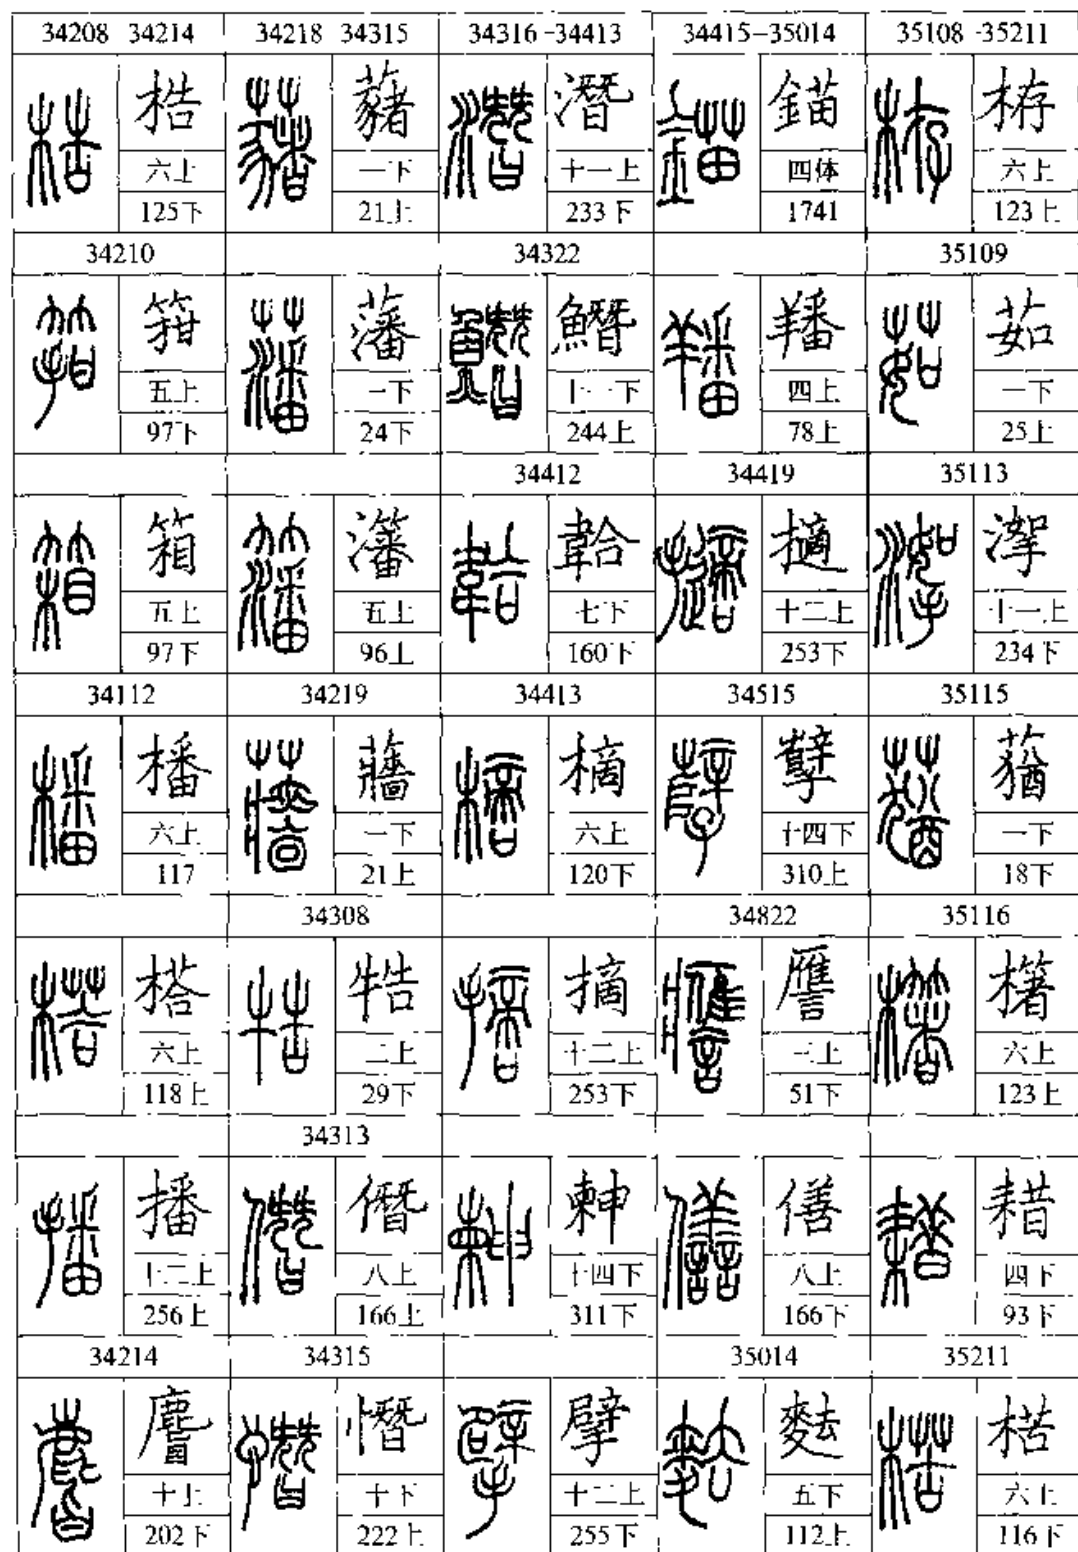 34208 34214
梏
六上
125下
34210
箝
五上
97下
箱
五上
97下
34112
橎
六上
117
榙
六上
118上
播
十二上
256上
34214
麔
十上
202下
34218 34315
藸
一下
21上
藩
一下
24下
籓
五上
96上
34219
蘠
一下
21上
34308
牿
二上
29下
34313
僭
八上
166上
34315
憯
十下
222上
34316-34413
潛
十一上
233下
34322
十一下
244上
34412
韐
七下
160下
34413
樀
六上
120下
摘
十二上
253下
朄
十四下
311下
擘
十二上
255下
34415-35014
錨
四体
1741
羳
四上
78上
34419
擿
十二上
253下
34515
孼
十四下
310上
34822
譍
三上
51下
僐
八上
166下
35014
麮
五下
112上
35108-35211
栫
六上
123上
35109
茹
一下
25上
35113
十一上
234下
35115
蕕
一下
18下
35116
櫡
六上
123上
耤
四下
93下
35211
楛
六上
116下